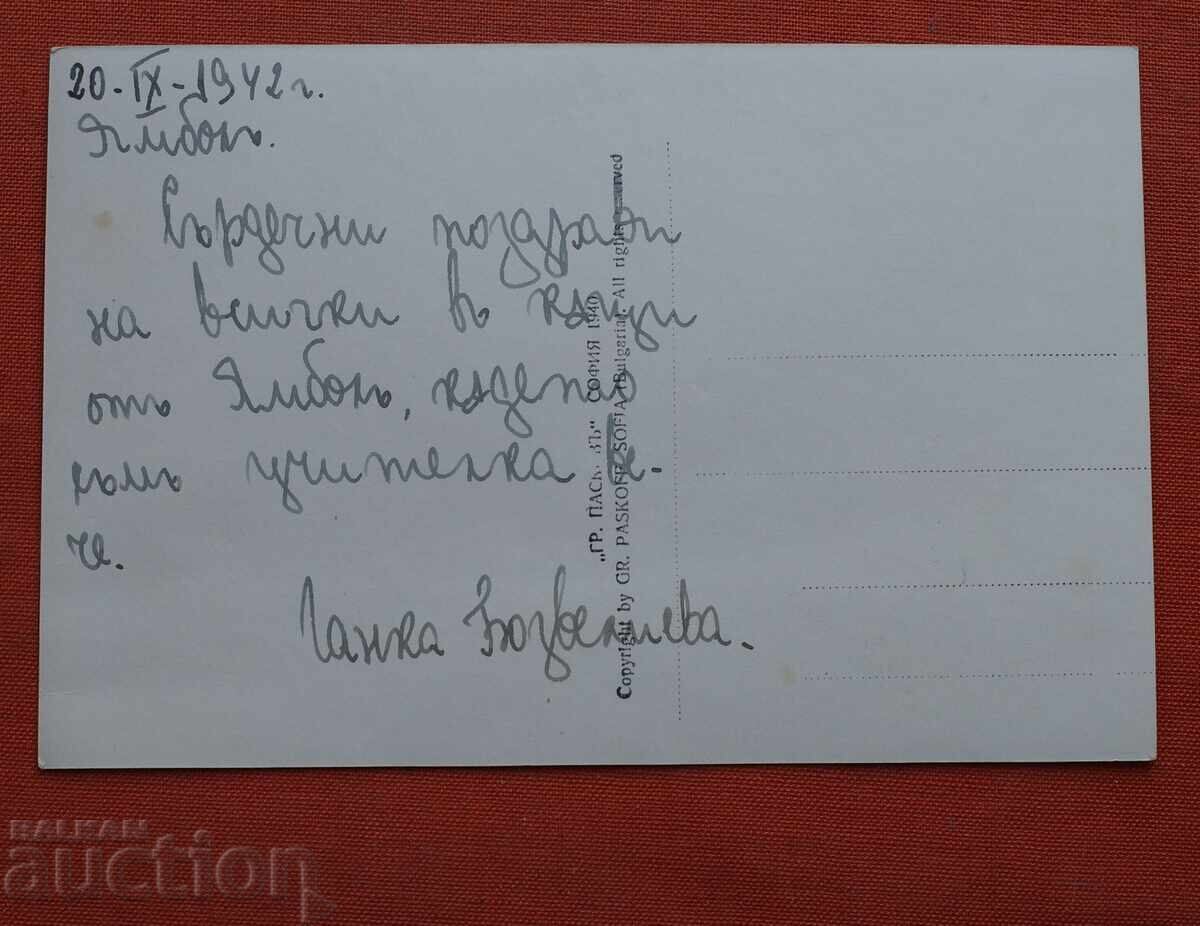 20-IX-1942 г.
Ямболъ.
Сърдечни поздрави
на всички въ кѫщи
отъ Ямболъ, кѫдето
съмъ учителка ве-
че.
Ганка Бозвелиева.
„ГР. ПАСКОВЪ“ СОФИЯ 1940
Copyright by GR. PASKOFF SOFIA (Bulgaria). All rights reserved
BALKAN
auction